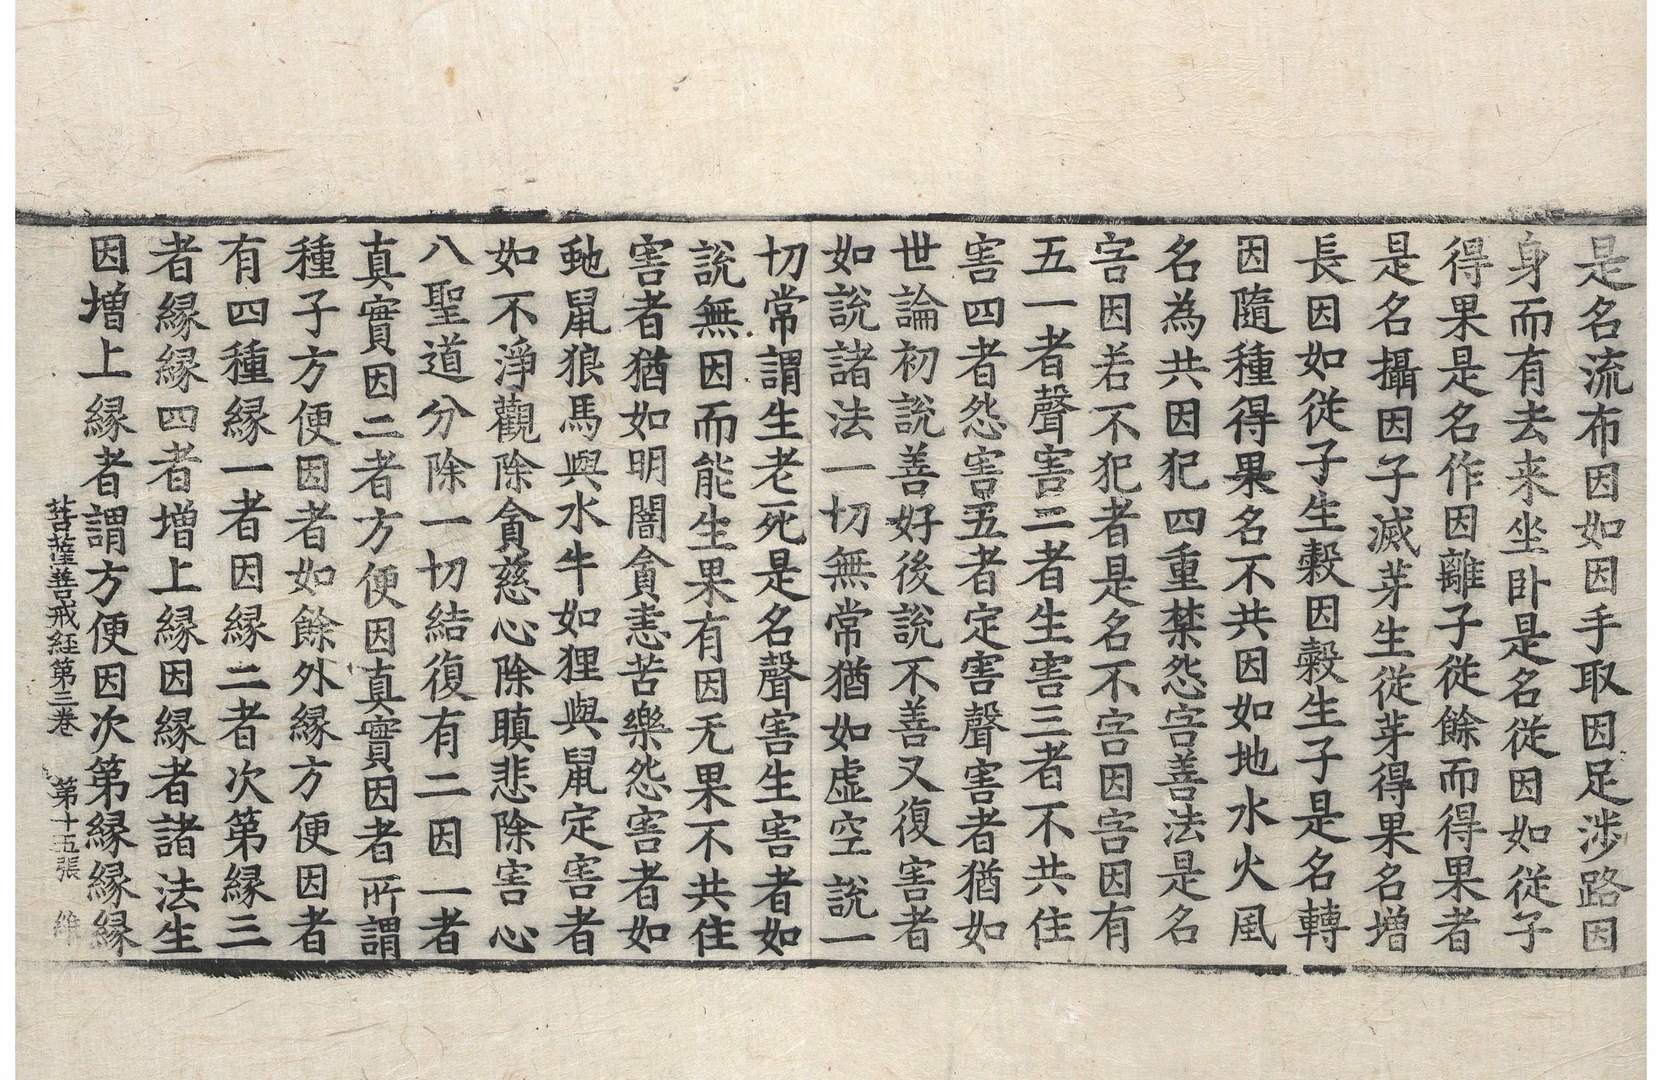 是名流布因如因手取因足涉路因
身而有去来坐卧是名從因如從子
得果是名作因離子從餘而得果者
是名攝因子滅芽生從芽得果名增
長因如從子生穀因穀生子是名轉
因隨種得果名不共因如地水火風
名為共因犯四重禁怨害善法是名
害因若不犯者是名不害因害因有
五一者聲害二者生害三者不共住
害四者怨害五者定害聲害者猶如
世論初說善好後說不善又復害者
如說諸法一切無常猶如虛空說一
切常謂生老死是名聲害生害者如
說無因而能生果有因无果不共住
害者猶如明闇貪恚苦樂怨害者如
虵鼠狼馬與水牛如狸與鼠定害者
如不淨觀除貪慈心除瞋悲除害心
八聖道分除一切結復有二因一者
真實因二者方便因真實因者所謂
種子方便因者如餘外縁方便因者
有四種縁一者因縁二者次第縁三
者縁縁四者增上縁因縁者諸法生
因增上縁者謂方便因次第縁縁縁
菩薩善戒経第三卷 第十五張 維